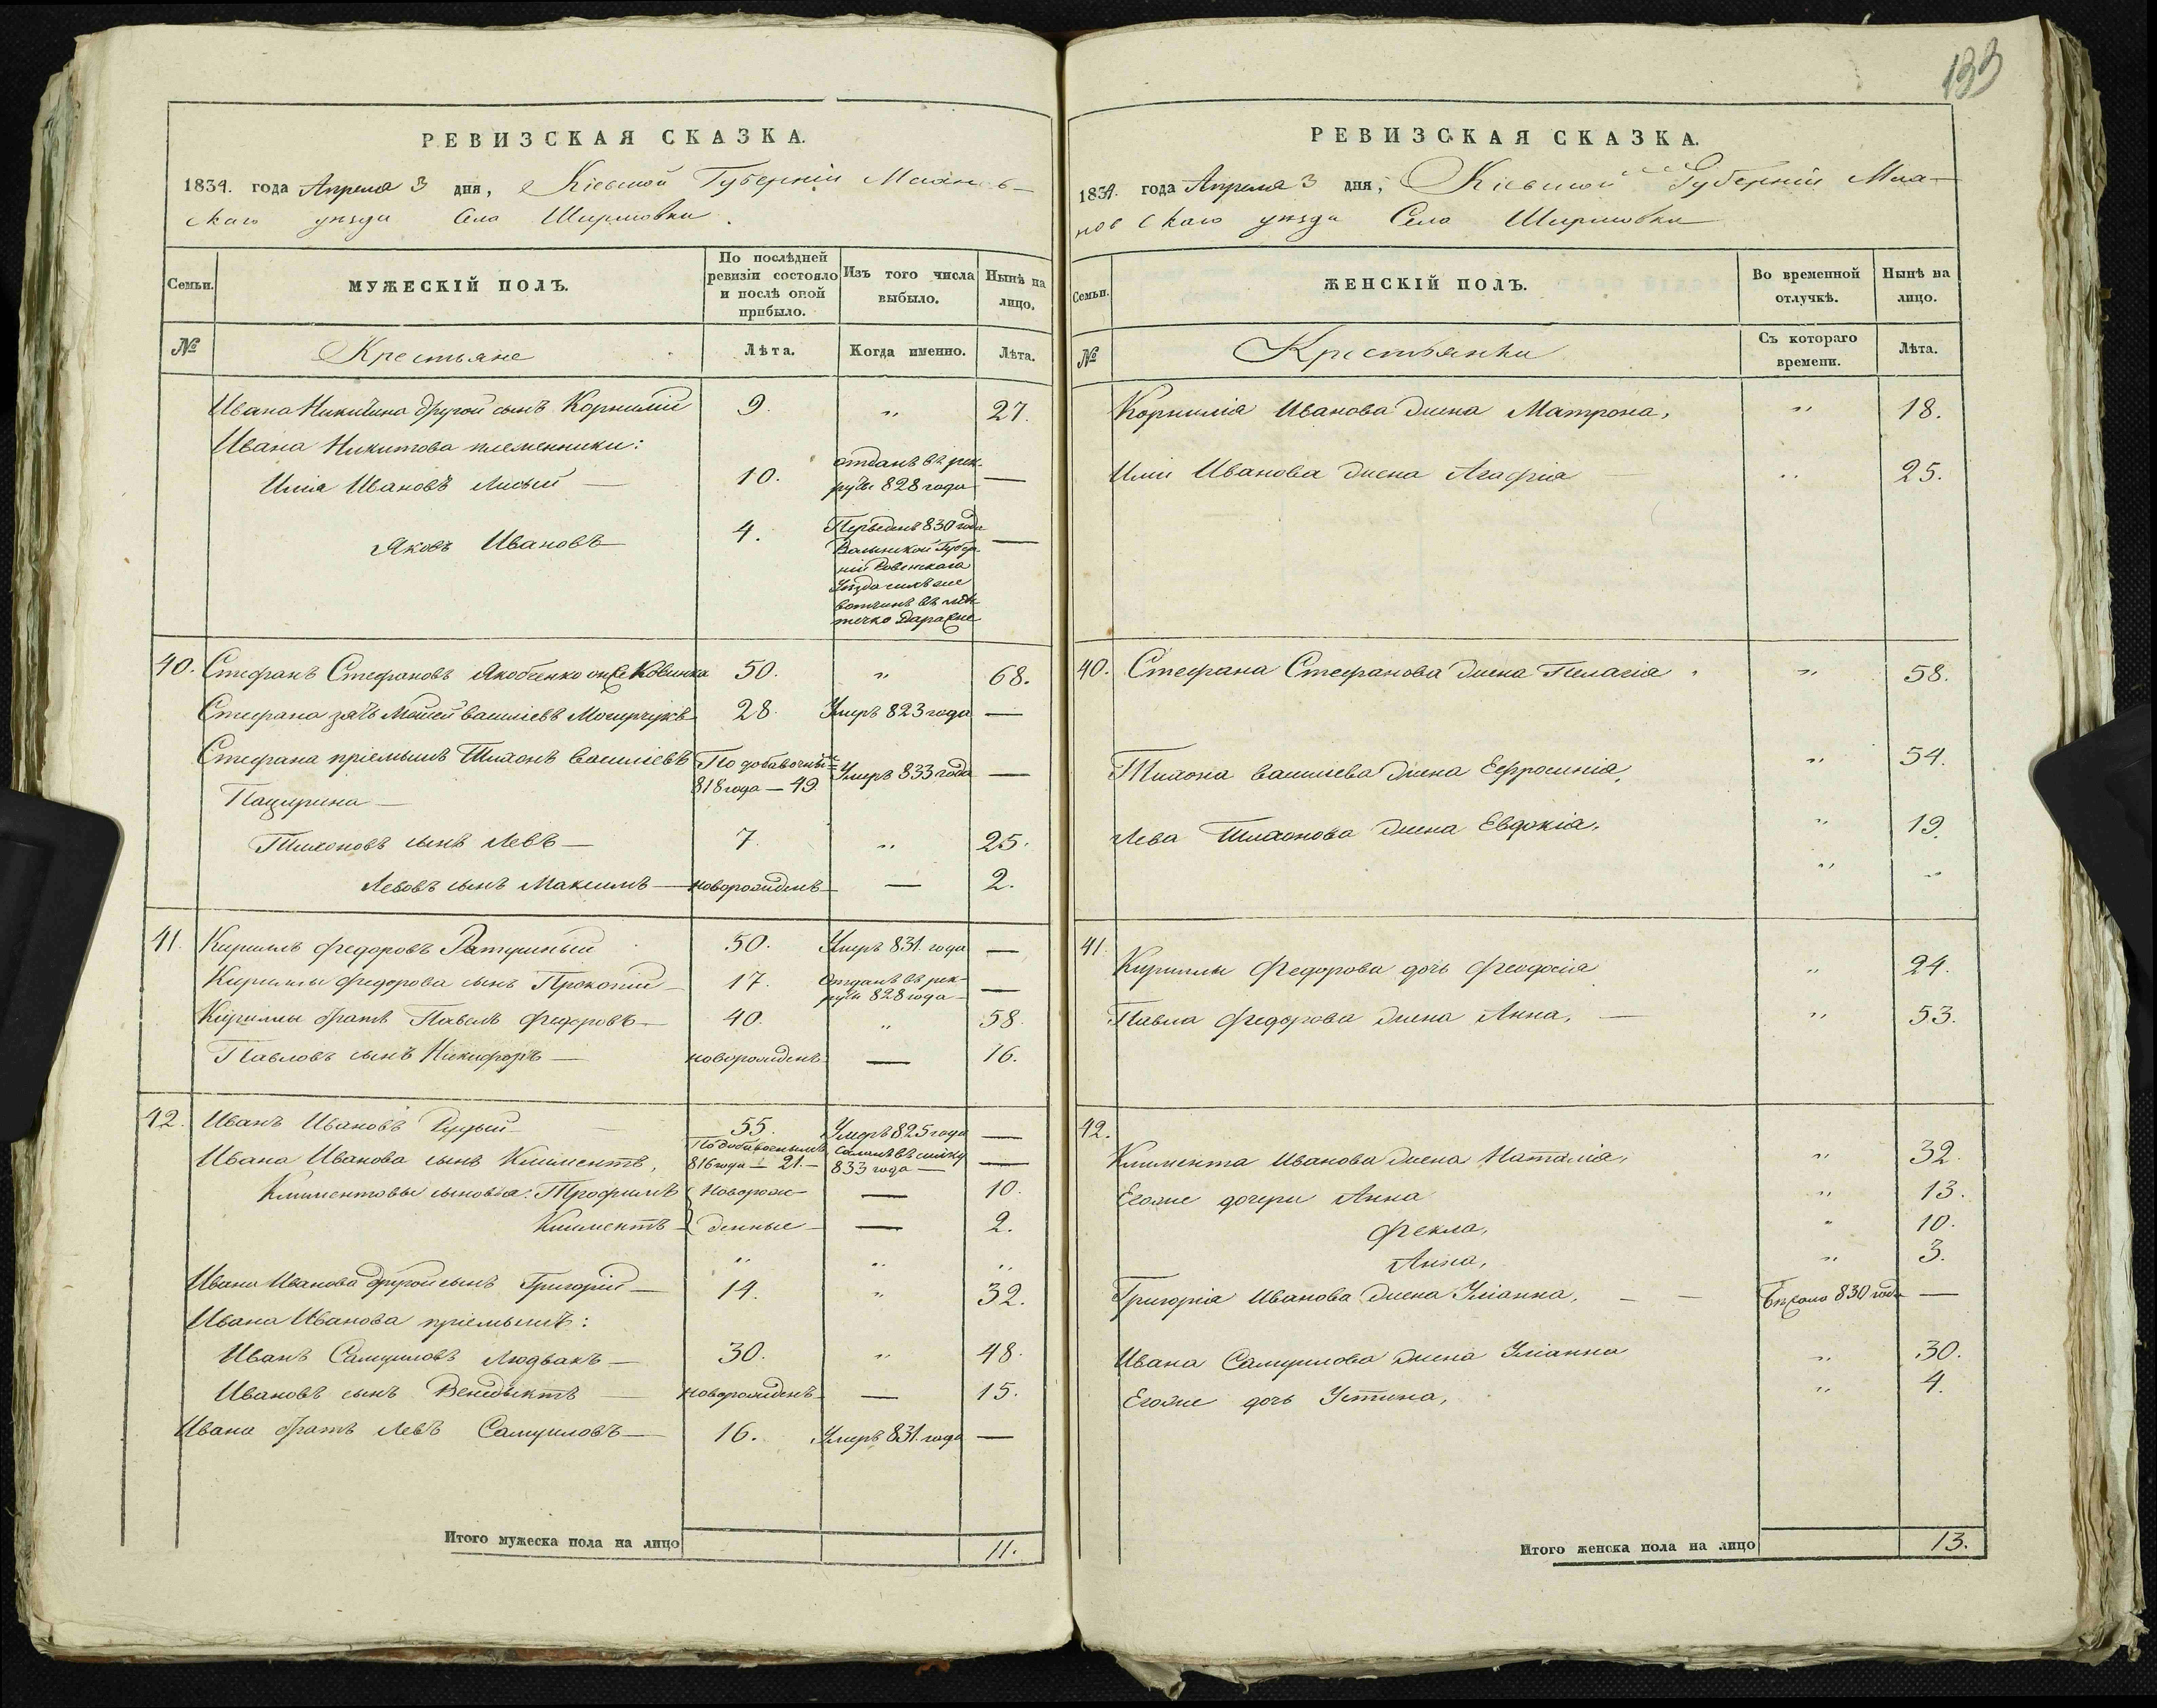 РЕВИЗСКАЯ СКАЗКА.
1834. года Апреля 3 дня, Кіевской Губерніи
скаго уезда Села Ширмовки
Семьи.
МУЖЕСКІЙ ПОЛЪ.
По послѣдней ревизіи состояло и послѣ оной прибыло.
Изъ того числа выбыло.
Нынѣ на лицо.
№
Крестьяне
Лѣта.
Когда именно.
Лѣта.
Ивана Никитина другой сынъ Корнилій 9. " 27.
Ивана Никитова племенники:
Илія Ивановъ Лисый — 10. отданъ въ рек-
руты 828 года —
Яковъ Ивановъ 4. Переведенъ 830 года —
Волынской Губер-
ніи Ровенскаго
Уезда
въ мѣс-
течко
40. Стефанъ Стефановъ Якобенко онже Ковинка 50. " 68.
Стефана зять Мойсей Василіевъ 28. Умеръ 823 года —
Стефана пріемышъ Тихонъ Василіевъ По добавочный Умеръ 833 года —
818 года — 49.
Пацурина —
Тихоновъ сынъ Левъ — 7. " 25.
Левовъ сынъ Максимъ — новорожденъ — 2.
41. Кириллъ Федоровъ 50. Умеръ 831. года —
Кириллы Федорова сынъ Прокопій 17. Отданъ въ рек-
руты 828 года —
Кириллы братъ Павелъ Федоровъ — 40. " 58.
Павловъ сынъ Никифоръ — новорожденъ — 16.
42. Иванъ Ивановъ 55. Умеръ 825 года —
Ивана Иванова сынъ Климентъ, По добавочнымъ
816 года — 21. — 833 года — —
Климентовы сыновья: Трофимъ Новорож- — 10.
Климентъ денные — 2.
" " "
Ивана Иванова другой сынъ Григорій — 14. " 32.
Ивана Иванова пріемышъ:
Иванъ Самуиловъ Людвакъ — 30. " 48.
Ивановъ сынъ Венедыктъ — новорожденъ — 15.
Ивана братъ Левъ Самуиловъ — 16. Умеръ 831. года —
Итого мужеска пола на лицо 11.
133
РЕВИЗСКАЯ СКАЗКА.
1834. года Апреля 3 дня, Кіевской Губерніи
скаго уезда Села Ширмовки
Семьи.
ЖЕНСКІЙ ПОЛЪ.
Во временной отлучкѣ.
Нынѣ на лицо.
№
Крестьянки
Съ котораго времени.
Лѣта.
Корнилія Иванова жена Матрона, " 18.
Иліи Иванова жена Агафія " 25.
40. Стефана Стефанова жена Пелагія " 58.
Тихона Василіева жена Ефросинія, " 54.
Лева Тихонова жена Евдокія, " 19.
" "
41. Кириллы Федорова дочь Феодосія " 24.
Павла Федорова жена Анна, — " 53.
42.
Климента Иванова жена Наталія, " 32.
Егоже дочери Анна " 13.
Фекла, " 10.
Анна, " 3.
Григорія Иванова жена Уліанна, — — Бежала 830 года —
Ивана Самуилова жена Уліанна " 30.
Егоже дочь Устина, " 4.
Итого женска пола на лицо 13.